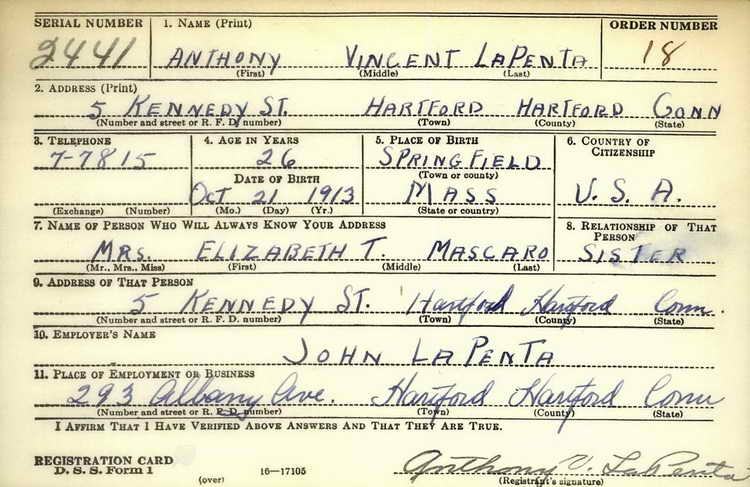 SERIAL NUMBER 1. NAME (Print) ORDER NUMBER
2441 ANTHONY VINCENT LAPENTA 18
(First) (Middle) (Last)
2. ADDRESS (Print)
5 KENNEDY ST. HARTFORD HARTFORD CONN
(Number and street or R. F. D. number) (Town) (County) (State)
3. TELEPHONE 4. AGE IN YEARS 5. PLACE OF BIRTH 6. COUNTRY OF CITIZENSHIP
7-7815 26 SPRINGFIELD
(Town or county)
DATE OF BIRTH
OCT 21 1913 MASS U.S.A.
(Exchange) (Number) (Mo.) (Day) (Yr.) (State or country)
7. NAME OF PERSON WHO WILL ALWAYS KNOW YOUR ADDRESS 8. RELATIONSHIP OF THAT PERSON
MRS. ELIZABETH T. MASCARO SISTER
(Mr., Mrs., Miss) (First) (Middle) (Last)
9. ADDRESS OF THAT PERSON
5 KENNEDY ST. Hartford Hartford Conn.
(Number and street or R. F. D. number) (Town) (County) (State)
10. EMPLOYER'S NAME
JOHN LAPENTA
11. PLACE OF EMPLOYMENT OR BUSINESS
293 Albany Ave. Hartford Hartford Conn
(Number and street or R. F. D. number) (Town) (County) (State)
I AFFIRM THAT I HAVE VERIFIED ABOVE ANSWERS AND THAT THEY ARE TRUE.
REGISTRATION CARD
D. S. S. Form 1 (over) 16-17105 Anthony V. LaPenta
(Registrant's signature)